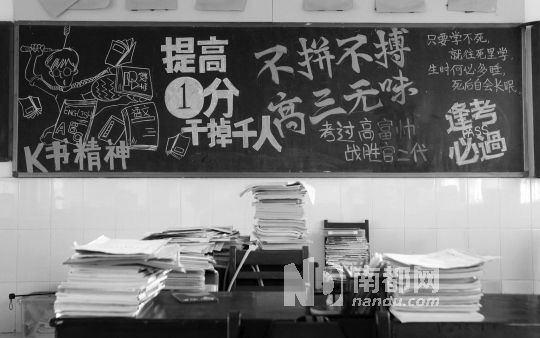 K书精神
ENGLISH
ABC
语文
提高
1分
干掉千人
不拼不搏
高三无味
考过高富帅
战胜富二代
只要学不死，
就往死里学，
生时何必多睡，
死后自会长眠，
逢考
PASS
必過
南都网
nandu.com